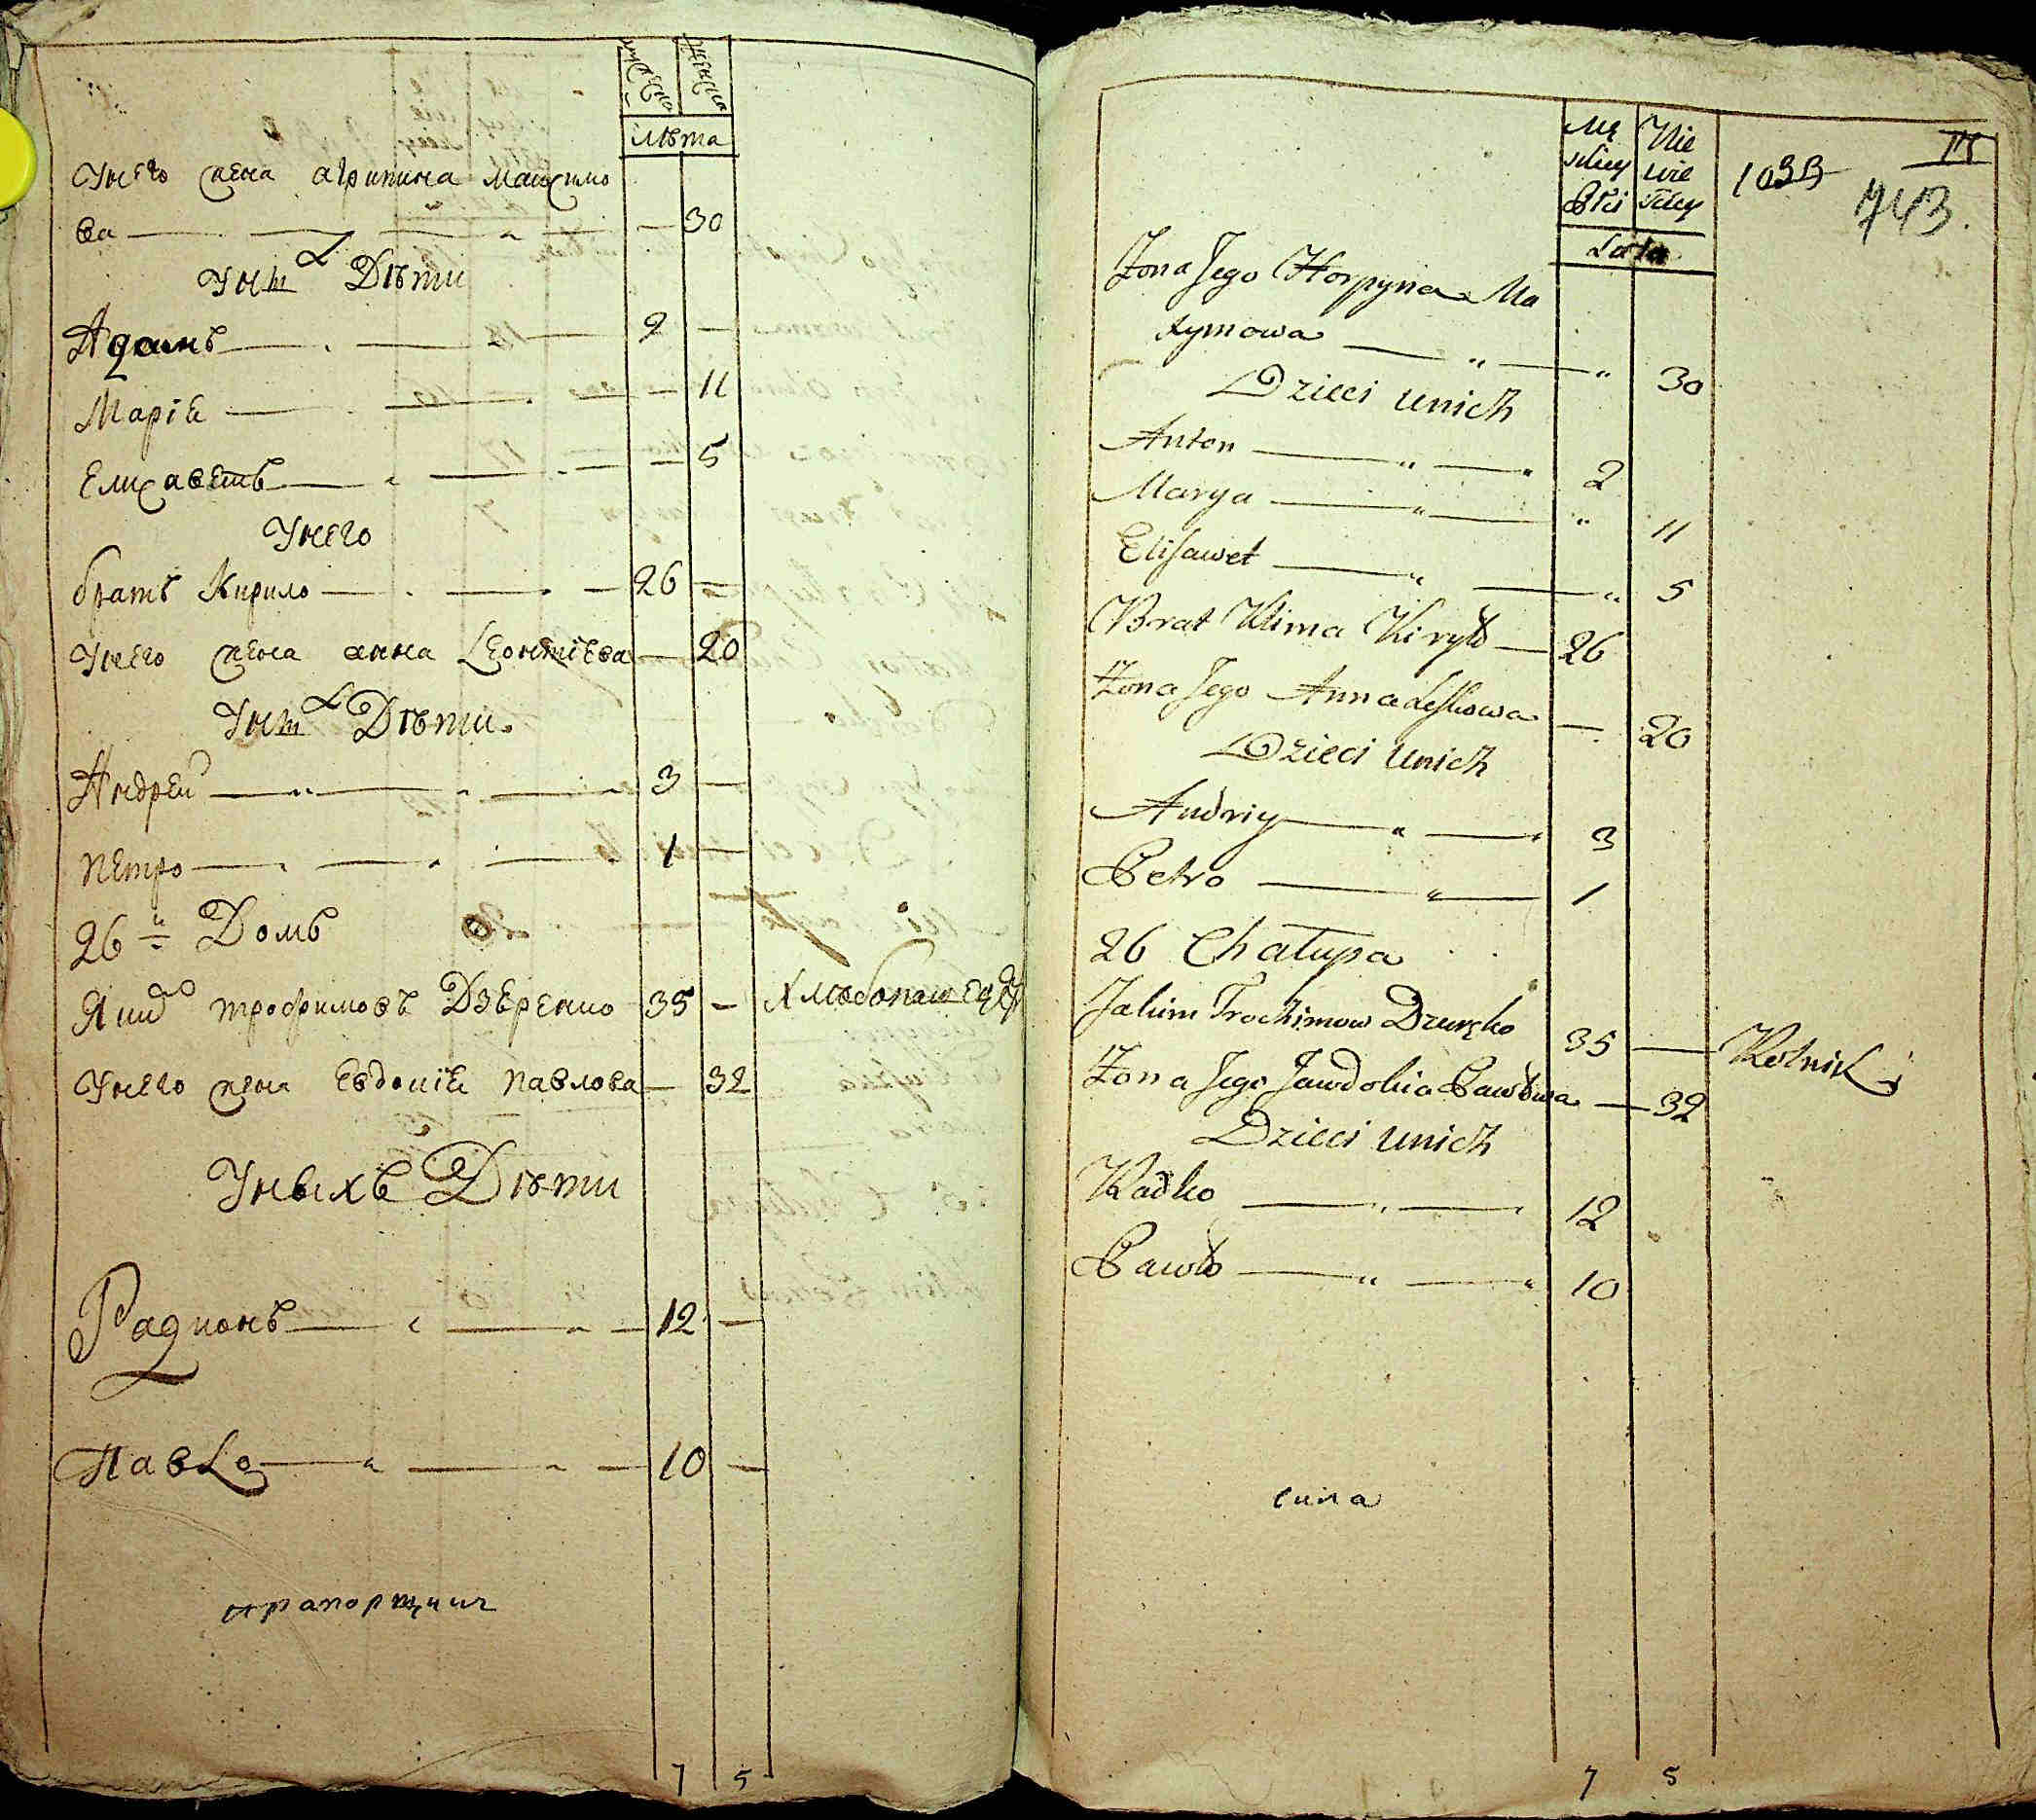 мужеска женска
лѣта
У него жена агрипина Максимо
ва — — 30
У них Дѣти
Адамъ — 2 —
Маріе — 11
Елисаветъ — — 5
У него
братъ Кирило — 26 —
У него жена анна Леонтіева — 20
У них Дѣти
Андрей — 3 —
Петро — 1 —
26й Домъ
Яким трофимовъ Дзеренко 35 — Хлѣбопашецъ
У него жена Евдокіе Павлова — 32
У ныхъ Дѣти
Радионъ — 12 —
Павло — 10 —
прапорщик
7 5
Mę Nie
skiey wie
Płci sciey
Lata
1039
743.
Zona Jego Horpyna Ma
xymowa — 30
Dzieci u nich
Anton — 2
Marya — 11
Elisawet — 5
Brat Klima Kiryło — 26
Zona Jego Anna Leskowa — 20
Dzieci u nich
Andriy — 3
Petro — 1
26 Chałupa
Jakim Trochimow Dzeręko 35 — Rolnik
Zona Jego Jawdokia Pawłowa — 32
Dzieci u nich
Radko — 12
Pawło — 10
сила
7 5